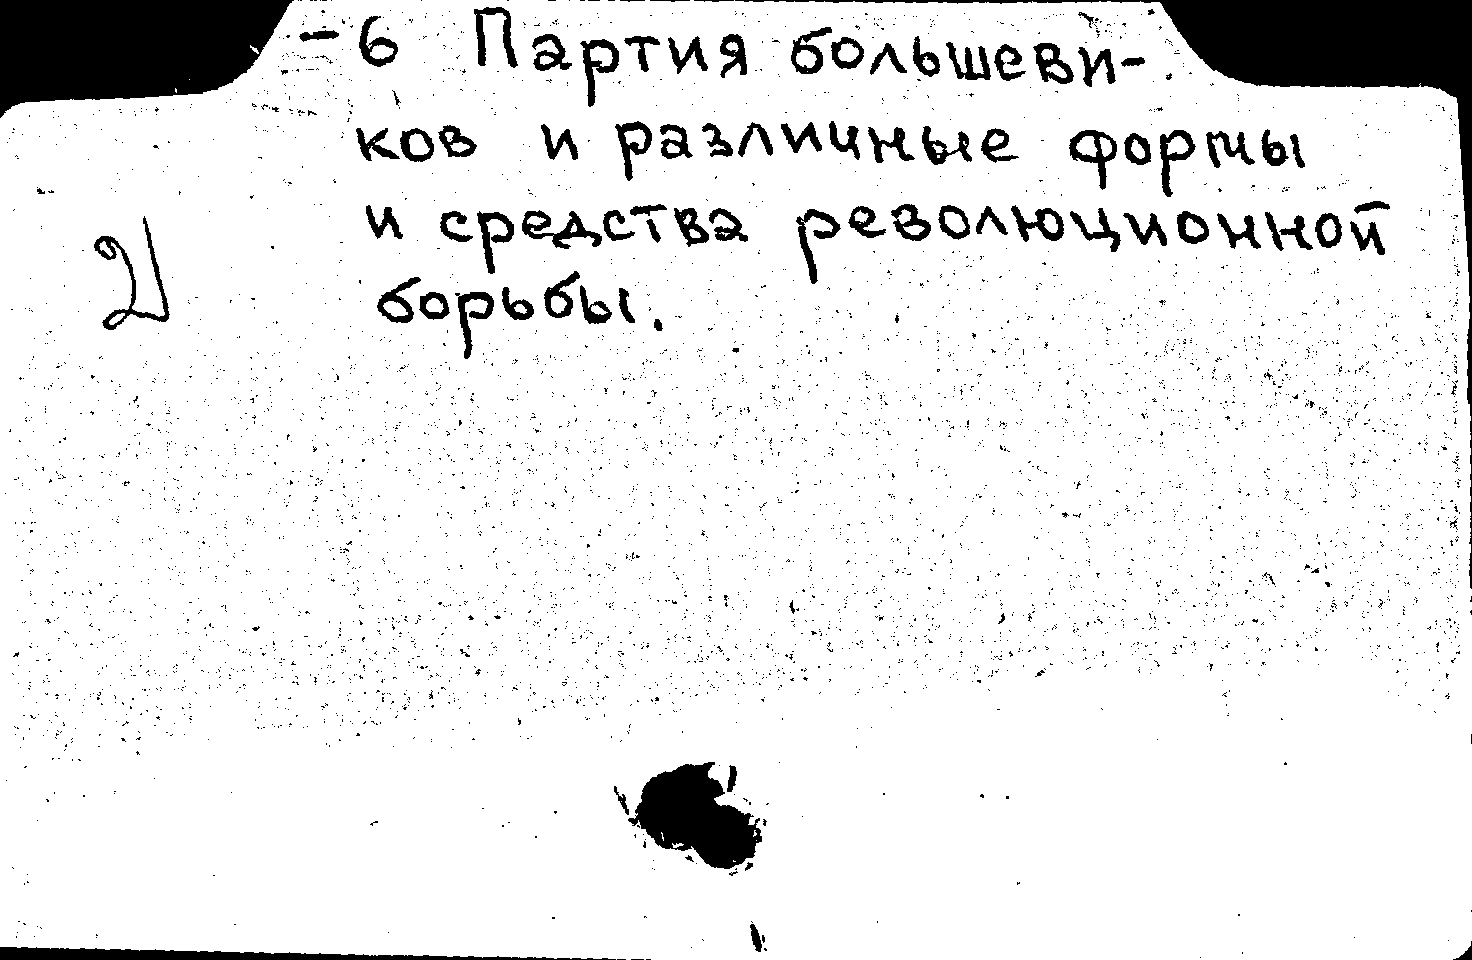 -6 Партия большеви-
ков и различные формы
и средства революционной
борьбы.